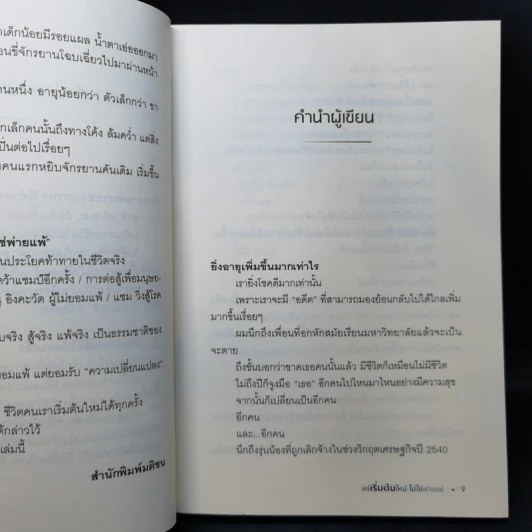 เด็กน้อยมีรอยแผล น้ำตาเอ่อออกมา
ขี่จักรยานโฉบเฉี่ยวไปมาผ่านหน้า
นหนึ่ง อายุน้อยกว่า ตัวเล็กกว่า ขา
กเล็กคนนั้นถึงทางโค้ง ล้มคว่ำ แต่สิ่ง
ปั่นต่อไปเรื่อยๆ
คนแรกหยิบจักรยานคันเดิม เริ่มขึ้น
ช่พ่ายแพ้"
นประโยคท้าทายในชีวิตจริง
ว้าแชมป์อีกครั้ง / การต่อสู้เพื่อมนุษย-
อิงคะวัต ผู้ไม่ยอมแพ้ / แซม วิ่งสู้โรค
บจริง สู้จริง แพ้จริง เป็นธรรมชาติของ
อมแพ้ แต่ยอมรับ "ความเปลี่ยนแปลง"
ชีวิตคนเราเริ่มต้นใหม่ได้ทุกครั้ง
ด้กล่าวไว้
ล่มนี้
สำนักพิมพ์มติชน
คำนำผู้เขียน
ยิ่งอายุเพิ่มขึ้นมากเท่าไร
เรายิ่งโชคดีมากเท่านั้น
เพราะเราจะมี "อดีต" ที่สามารถมองย้อนกลับไปได้ไกลเพิ่ม
มากขึ้นเรื่อยๆ
ผมนึกถึงเพื่อนที่อกหักสมัยเรียนมหาวิทยาลัยแล้วจะเป็น
จะตาย
ถึงขั้นบอกว่าขาดเธอคนนั้นแล้ว มีชีวิตก็เหมือนไม่มีชีวิต
ไม่ถึงปีก็จูงมือ "เธอ" อีกคนไปไหนมาไหนอย่างมีความสุข
จากนั้นก็เปลี่ยนเป็นอีกคน
อีกคน
และ...อีกคน
นึกถึงรุ่นน้องที่ถูกเลิกจ้างในช่วงวิกฤตเศรษฐกิจปี 2540
แค่เริ่มต้นใหม่ ไม่ใช่พ่ายแพ้ • 9